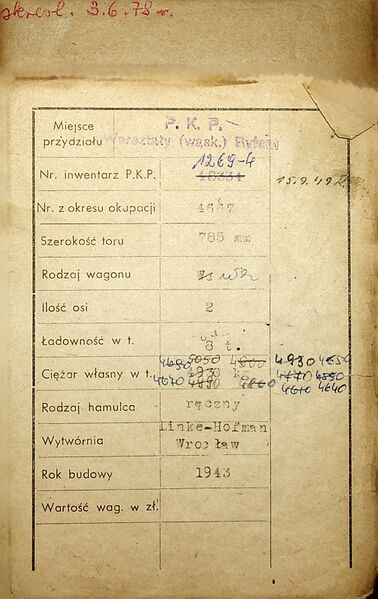 skreśl. 3.6.78 r.
Miejsce przydziału P. K. P.
Warsztaty (wąsk.) Bytom
1269-4
Nr. inwentarz P.K.P. 15.9.49
Nr. z okresu okupacji 4667
Szerokość toru 785 mm
Rodzaj wagonu
Ilość osi 2
Ładowność w t. 8 t.
4650 5050 4930 4650
Ciężar własny w t. 4930 kg
4640 4640
Rodzaj hamulca ręczny
Wytwórnia Linke-Hofman
Wrocław
Rok budowy 1943
Wartość wag. w zł.